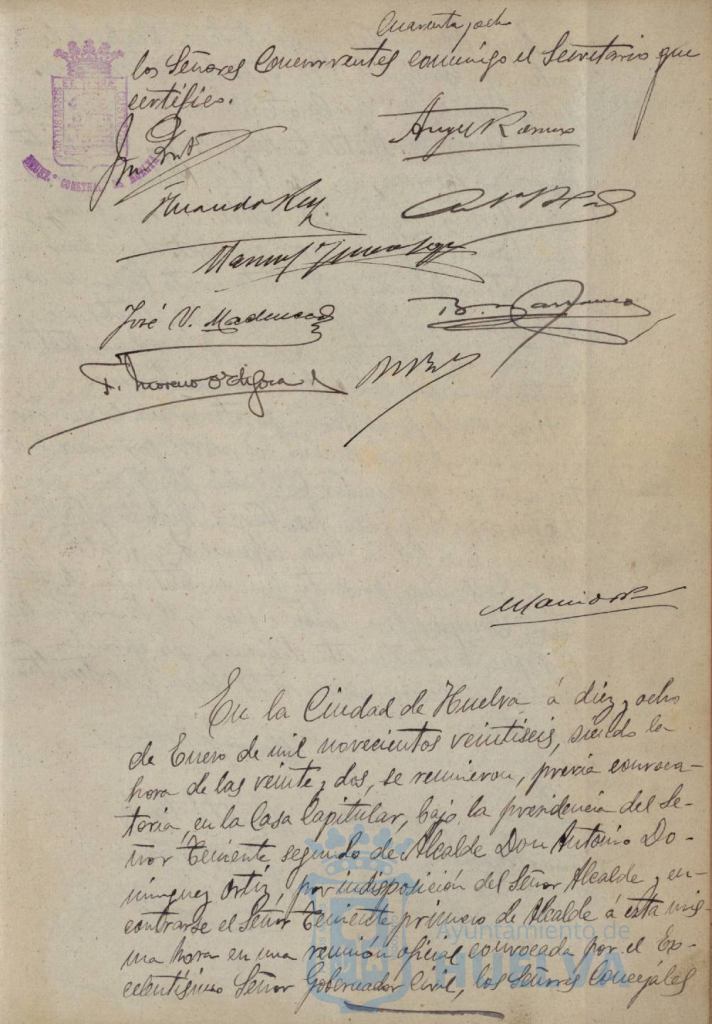 Cuarenta y ocho
los Señores Concurrentes conmigo el Secretario que
certifico.
Angel Ramos
José V.
F. Moreno
En la Ciudad de Huelva á diez y ocho
de Enero de mil novecientos veintiseis, siendo la
hora de las veinte y dos, se reunieron, previa convoca-
toria, en la Casa Capitular, bajo la presidencia del Se-
ñor Teniente segundo de Alcalde Don Antonio Do-
minguez Ortiz, por indisposición del Señor Alcalde y en-
contrarse el Señor Teniente primero de Alcalde á esta mis-
ma hora en una reunión oficial convocada por el Ex-
celentísimo Señor Gobernador Civil, los Señores Concejales
Ayuntamiento de
HUELVA